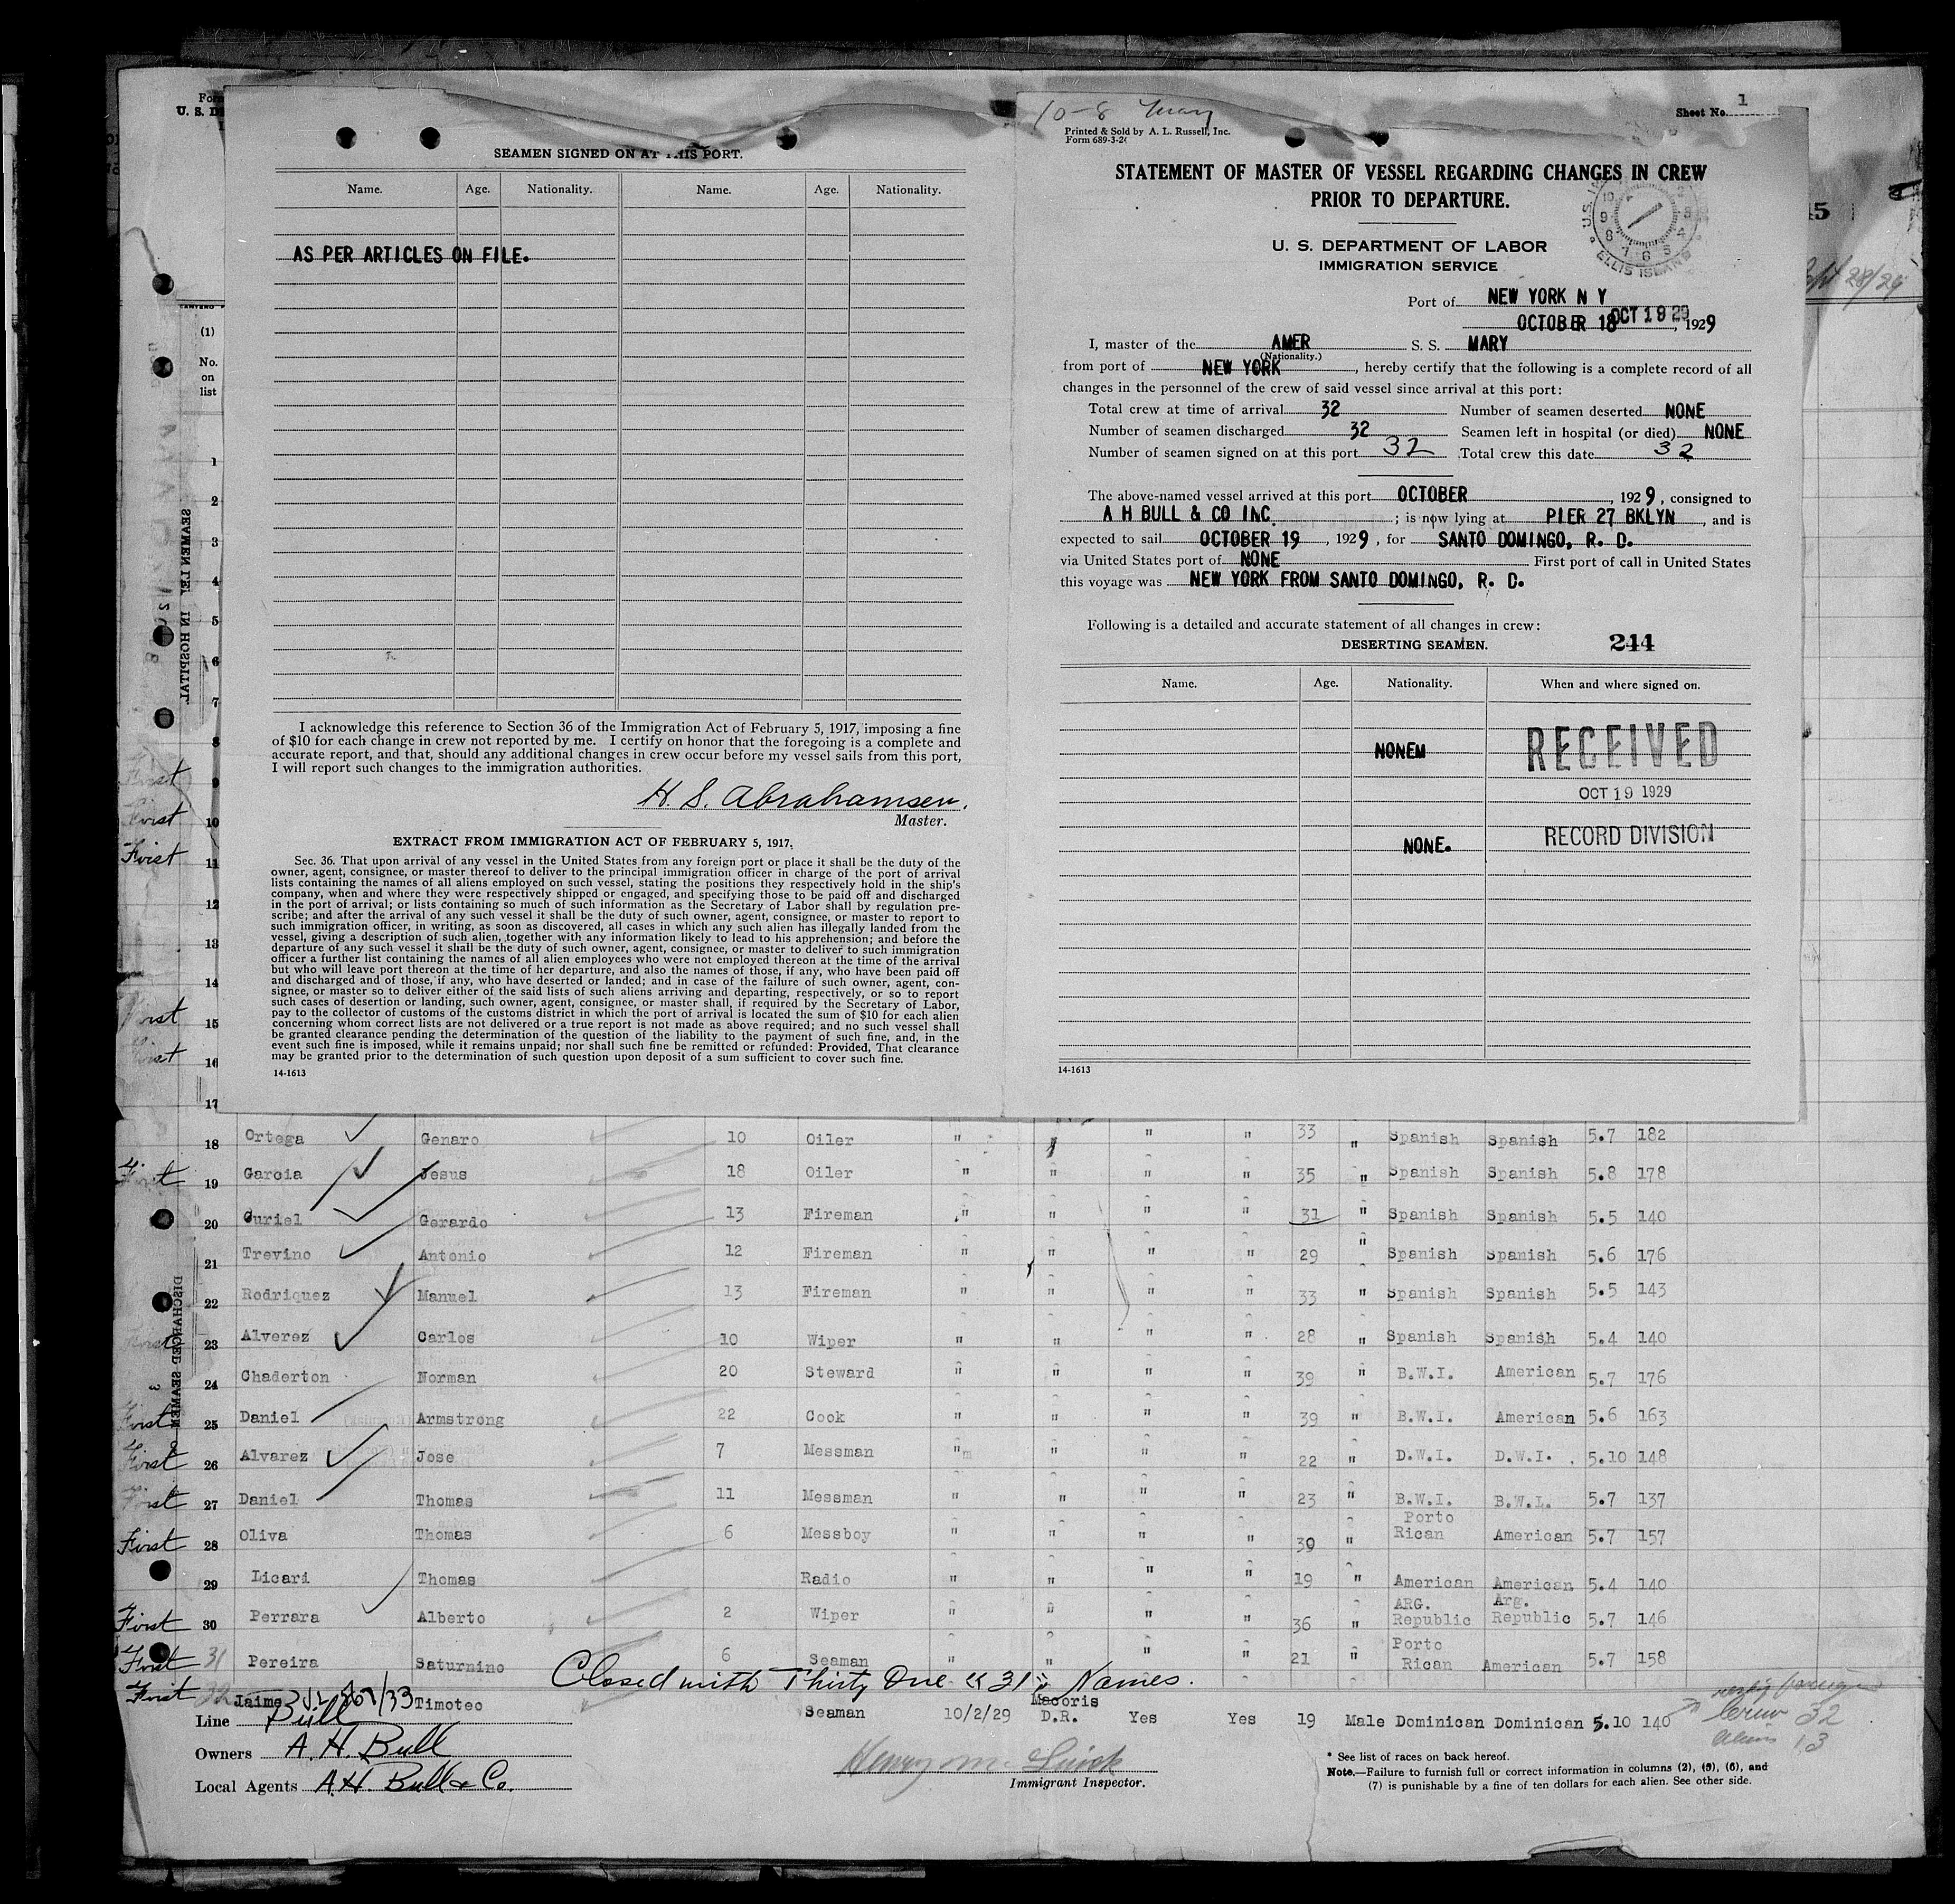 SEAMEN SIGNED ON AT THIS PORT.
Name. Age. Nationality. Name. Age. Nationality.
AS PER ARTICLES ON FILE.
I acknowledge this reference to Section 36 of the Immigration Act of February 5, 1917, imposing a fine
of $10 for each change in crew not reported by me. I certify on honor that the foregoing is a complete and
accurate report, and that, should any additional changes in crew occur before my vessel sails from this port,
I will report such changes to the immigration authorities.
H. S. Abrahamsen.
Master.
EXTRACT FROM IMMIGRATION ACT OF FEBRUARY 5, 1917.
Sec. 36. That upon arrival of any vessel in the United States from any foreign port or place it shall be the duty of the
owner, agent, consignee, or master thereof to deliver to the principal immigration officer in charge of the port of arrival
lists containing the names of all aliens employed on such vessel, stating the positions they respectively hold in the ship's
company, when and where they were respectively shipped or engaged, and specifying those to be paid off and discharged
in the port of arrival; or lists containing so much of such information as the Secretary of Labor shall by regulation pre-
scribe; and after the arrival of any such vessel it shall be the duty of such owner, agent, consignee, or master to report to
such immigration officer, in writing, as soon as discovered, all cases in which any such alien has illegally landed from the
vessel, giving a description of such alien, together with any information likely to lead to his apprehension; and before the
departure of any such vessel it shall be the duty of such owner, agent, consignee, or master to deliver to such immigration
officer a further list containing the names of all alien employees who were not employed thereon at the time of the arrival
but who will leave port thereon at the time of her departure, and also the names of those, if any, who have been paid off
and discharged and of those, if any, who have deserted or landed; and in case of the failure of such owner, agent, con-
signee, or master so to deliver either of the said lists of such aliens arriving and departing, respectively, or so to report
such cases of desertion or landing, such owner, agent, consignee, or master shall, if required by the Secretary of Labor,
pay to the collector of customs of the customs district in which the port of arrival is located the sum of $10 for each alien
concerning whom correct lists are not delivered or a true report is not made as above required; and no such vessel shall
be granted clearance pending the determination of the question of the liability to the payment of such fine, and, in the
event such fine is imposed, while it remains unpaid; nor shall such fine be remitted or refunded: Provided, That clearance
may be granted prior to the determination of such question upon deposit of a sum sufficient to cover such fine.
14-1613
10-8 Mary
Printed & Sold by A. L. Russell, Inc.
Form 689-3-26
Sheet No. 1
STATEMENT OF MASTER OF VESSEL REGARDING CHANGES IN CREW
PRIOR TO DEPARTURE.
U. S. DEPARTMENT OF LABOR
IMMIGRATION SERVICE
ELLIS ISLAND
Port of NEW YORK N Y
OCTOBER 18 OCT 19 29, 1929
I, master of the AMER S. S. MARY
(Nationality.)
from port of NEW YORK, hereby certify that the following is a complete record of all
changes in the personnel of the crew of said vessel since arrival at this port:
Total crew at time of arrival 32 Number of seamen deserted NONE
Number of seamen discharged 32 Seamen left in hospital (or died) NONE
Number of seamen signed on at this port 32 Total crew this date 32
The above-named vessel arrived at this port OCTOBER, 1929, consigned to
A H BULL & CO INC; is now lying at PIER 27 BKLYN, and is
expected to sail OCTOBER 19, 1929, for SANTO DOMINGO, R. D.
via United States port of NONE First port of call in United States
this voyage was NEW YORK FROM SANTO DOMINGO, R. D.
Following is a detailed and accurate statement of all changes in crew:
DESERTING SEAMEN. 244
Name. Age. Nationality. When and where signed on.
NONEM
RECEIVED
OCT 19 1929
RECORD DIVISION
NONE.
14-1613
(1)
No.
on
list
1
2
3
4
5
6
7
8
First 9
First 10
First 11
12
13
14
First 15
First 16
17
SEAMEN LEFT IN HOSPITAL
DISCHARGED SEAMEN
45
Sept 28/29
18 Ortega Genaro 10 Oiler " " " " 33 " Spanish Spanish 5.7 182
First 19 Garcia Jesus 18 Oiler " " " " 35 " Spanish Spanish 5.8 178
20 Curiel Gerardo 13 Fireman " " " " 31 " Spanish Spanish 5.5 140
21 Trevino Antonio 12 Fireman " " " " 29 " Spanish Spanish 5.6 176
22 Rodriquez Manuel 13 Fireman " " " " 33 " Spanish Spanish 5.5 143
First 23 Alverez Carlos 10 Wiper " " " " 28 " Spanish Spanish 5.4 140
24 Chaderton Norman 20 Steward " " " " 39 " B.W.I. American 5.7 176
First 25 Daniel Armstrong 22 Cook " " " " 39 " B.W.I. American 5.6 163
First 26 Alvarez Jose 7 Messman " " " " 22 " D.W.I. D.W.I. 5.10 148
First 27 Daniel Thomas 11 Messman " " " " 23 " B.W.I. B.W.I. 5.7 137
First 28 Oliva Thomas 6 Messboy " " " " 39 " Porto Rican American 5.7 157
29 Licari Thomas Radio " " " " 19 " American American 5.4 140
First 30 Perrara Alberto 2 Wiper " " " " 36 " ARG. Republic Arg. Republic 5.7 146
First 31 Pereira Saturnino 6 Seaman " " " " 21 " Porto Rican American 5.7 158
Closed with Thirty One "31" Names.
First 32 Jaime Timoteo Seaman 10/2/29 Macoris D.R. Yes Yes 19 Male Dominican Dominican 5.10 140
Line Bull
Owners A. H. Bull
Local Agents A. H. Bull & Co.
Immigrant Inspector.
Crew 32
Aliens 13
* See list of races on back hereof.
Note.—Failure to furnish full or correct information in columns (2), (5), (6), and
(7) is punishable by a fine of ten dollars for each alien. See other side.